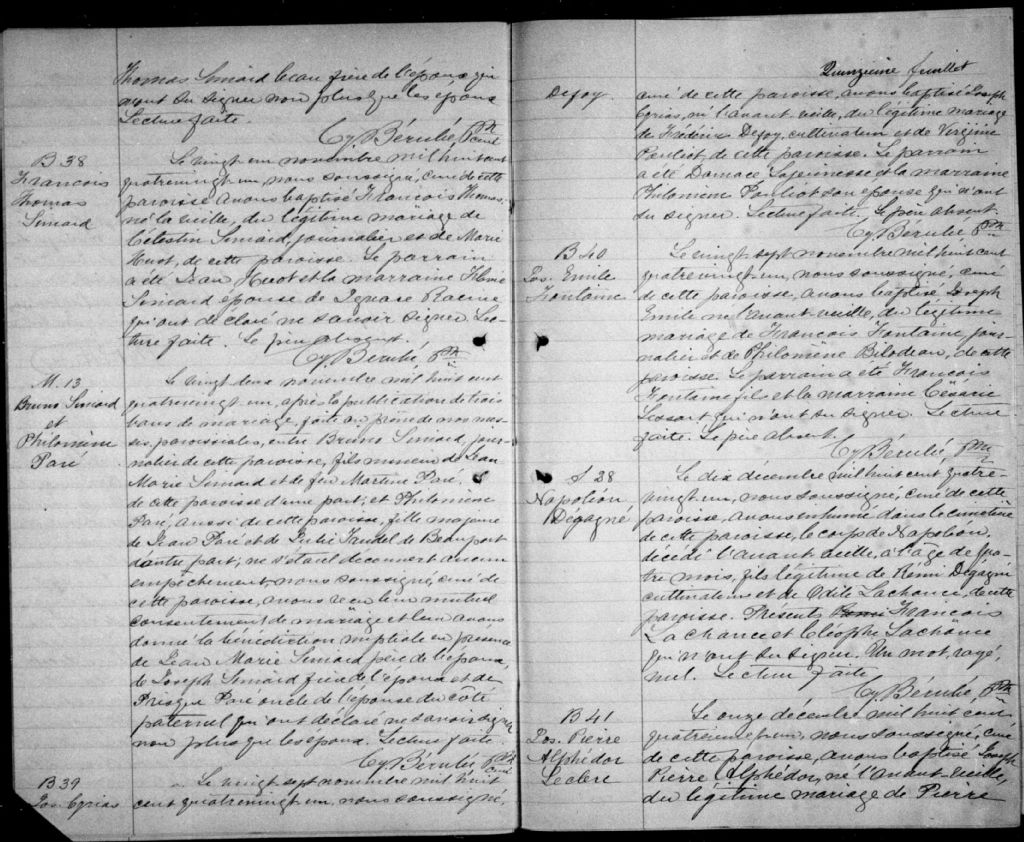 Thomas Simard beau frère de l'époux qui
n'ont su signer non plus que les époux
Lecture faite.
Cy. Bérubé, Ptre curé
B 38
François
Thomas
Simard
Le vingt un novembre mil huit cent
quatrevingt un, nous soussigné, curé de cette
paroisse avons baptisé François Thomas,
né la veille, du légitime mariage de
Célestin Simard, journalier et de Marie
Huot, de cette paroisse. Le parrain
a été Jean Huot et la marraine
Simard épouse de Ignace Racine
qui ont déclaré ne savoir signer. Lec-
ture faite. Le père absent.
Cy. Bérubé, Ptre
M. 13
Bruno Simard
et
Philomène
Paré
Le vingt deux novembre mil huit cent
quatrevingt un, après la publication de trois
bans de mariage, faite au prône de nos mes-
ses paroissiales, entre Bruno Simard, jour-
nalier de cette paroisse, fils mineur de Jean
Marie Simard et de feu Martine Paré,
de cette paroisse d'une part; et Philomène
Paré, aussi de cette paroisse, fille majeure
de Jean Paré et de Julie Trudel de Beauport
d'autre part; ne s'étant découvert aucun
empêchement, nous soussigné, curé de
cette paroisse, avons reçu leur mutuel
consentement de mariage et leur avons
donné la bénédiction nuptiale en présence
de Jean Marie Simard père de l'époux,
de Joseph Simard frère de l'époux et de
Prisque Paré oncle de l'épouse du côté
paternel qui ont déclaré ne savoir signer
non plus que les époux. Lecture faite.
Cy. Bérubé Ptre Curé
B 39
Jos. Cyrias
Le vingt sept novembre mil huit
cent quatrevingt un, nous soussigné,
Quinzième feuillet
Defoy.
curé de cette paroisse, avons baptisé Joseph
Cyrias, né l'avant veille, du légitime mariage
de Frédéric Defoy, cultivateur et de Virginie
Pouliot, de cette paroisse. Le parrain
a été Damase Lajeunesse et la marraine
Philomène Pouliot son épouse qui n'ont
su signer. Lecture faite. Le père absent.
Cy. Bérubé Ptre
B 40
Jos. Emile
Fontaine
Le vingt sept novembre mil huit cent
quatrevingt un, nous soussigné, curé
de cette paroisse, avons baptisé Joseph
Emile né l'avant veille, du légitime
mariage de François Fontaine jour-
nalier et de Philomène Bilodeau, de cette
paroisse. Le parrain a été François
Fontaine fils et la marraine Césarie
qui n'ont su signer. Lecture
faite. Le père absent.
Cy. Bérubé, Ptre
S 28
Napoléon
Dégagné
Le dix décembre mil huit cent quatre-
vingt un, nous soussigné, curé de cette
paroisse, avons inhumé dans le cimetière
de cette paroisse, le corps de Napoléon,
décédé l'avant veille, à l'âge de qua-
tre mois, fils légitime de Rémi Dégagné
cultivateur et de Odile Lachance, de cette
paroisse. Présents François
Lachance et Cléophe Lachance
qui n'ont su signer. Un mot, rayé,
nul. Lecture faite
Cy. Bérubé Ptre
B 41
Jos. Pierre
Alphédor
Leclerc
Le onze décembre mil huit cent
quatrevingt un, nous soussigné, curé
de cette paroisse, avons baptisé Joseph
Pierre Alphédor, né l'avant-veille,
du légitime mariage de Pierre